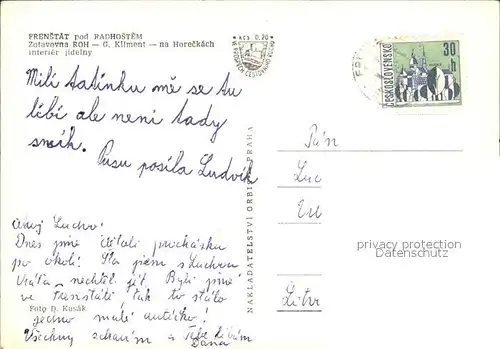 FRENŠTÁT pod RADHOŠTĚM
Zotavovna ROH — G. Kliment — na Horečkách
interiér jídelny
Kčs 0,20
30 h
ČESKOSLOVENSKO
Milí tatínku mě se tu
líbí ale neni tady
sníh.
Pusu posílá Ludvík
NAKLADATELSTVÍ ORBIS PRAHA
Pán
Luc
Litv
Ahoj Lucho!
Dnes jsme dělali procházku
po okolí. Šla jsem s Luckou
nechtěl jít. Byli jsme
ve Frenštátě tak to stálo
jedno malé autíčko!
Foto D. Kusák
Všechny zdravím a Tebe líbám
Dana
privacy protection
DATENSCHUTZ